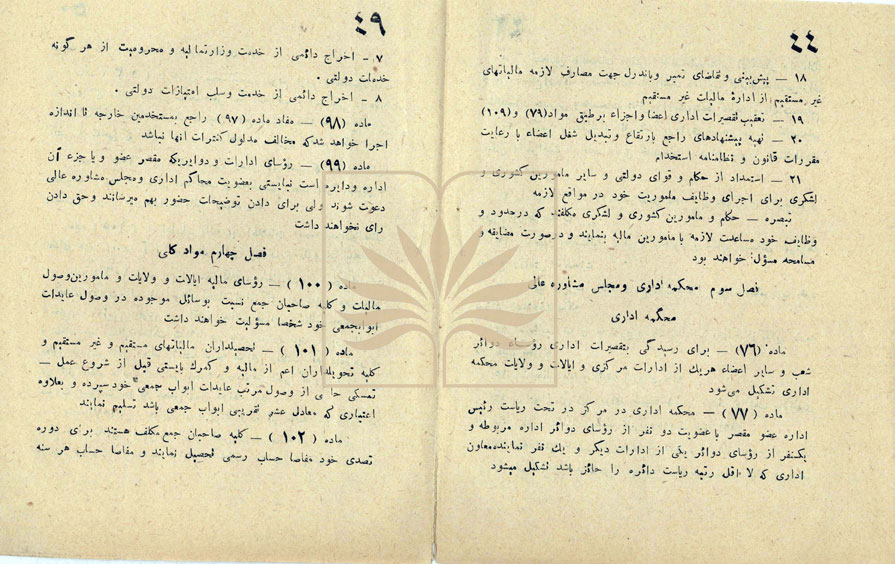 ٤٤
۱۸ — پیش‌بینی و تقاضای تمبر و باندرل جهت مصارف لازمه مالیاتهای
غیر مستقیم از ادارهٔ مالیات غیر مستقیم
۱۹ — تعقیب تقصیرات اداری اعضا و اجزاء برطبق مواد (۷۹) و (۱۰۹)
۲۰ — تهیه پیشنهادهای راجع بارتفاع و تبدیل شغل اعضاء با رعایت
مقررات قانون و نظامنامه استخدام
۲۱ — استمداد از حکام و قوای دولتی و سایر مامورین کشوری و
لشگری برای اجرای وظایف ماموریت خود در مواقع لازمه
تبصره — حکام و مامورین کشوری و لشگری مکلفند که در حدود و
وظایف خود مساعدت لازمه با مامورین مالیه بنمایند و درصورت مضایقه و
مسامحه مسؤل خواهند بود
فصل سوم محکمه اداری و مجلس مشاوره عالی
محکمه اداری
ماده (۷۶) — برای رسیدگی بتقصیرات اداری رؤساء دوائر
شعب و سایر اعضاء هریك از ادارات مرکزی و ایالات و ولایات محکمه
اداری تشکیل می‌شود
ماده (۷۷) — محکمه اداری در مرکز در تحت ریاست رئیس
اداره عضو مقصر با عضویت دو نفر از رؤسای دوائر اداره مربوطه و
یکنفر از رؤسای دوائر یکی از ادارات دیگر و یك نفر نماینده معاون
اداری که لا اقل رتبه ریاست دائره را حائز باشد تشکیل میشود
٤۹
۷ - اخراج دائمی از خدمت وزارتمالیه و محرومیت از هر گونه
خدمات دولتی .
۸ - اخراج دائمی از خدمت وسلب امتیازات دولتی .
ماده (۹۸) — مفاد ماده (۹۷) راجع بمستخدمین خارجه تا اندازه
اجرا خواهد شد که مخالف مدلول کنترات آنها نباشد
ماده (۹۹) — رؤسای ادارات و دوایریکه مقصر عضو و یا جزء آن
اداره و دایره است نبایستی بعضویت محاکم اداری و مجلس مشاوره عالی
دعوت شوند ولی برای دادن توضیحات حضور بهم میرسانند و حق دادن
رای نخواهند داشت
فصل چهارم مواد کلی
ماده (۱۰۰) — رؤسای مالیه ایالات و ولایات و مامورین وصول
مالیات و کلیه صاحبان جمع نسبت بوسائل موجوده در وصول عایدات
ابوابجمعی خود شخصا مسؤلیت خواهند داشت
ماده (۱۰۱) — تحصیلداران مالیاتهای مستقیم و غیر مستقیم و
کلیه تحویلداران اعم از مالیه و گمرك بایستی قبل از شروع عمل —
تمسکی از وصول مرتب عایدات ابواب جمعی خود سپرده و بعلاوه
اعتباری که معادل عشر تقریبی ابواب جمعی باشد تسلیم نمایند
ماده (۱۰۲) — کلیه صاحبان جمع مکلف هستند برای دوره
تصدی خود مفاصا حساب رسمی تحصیل نمایند و مفاصا حساب هر سنه